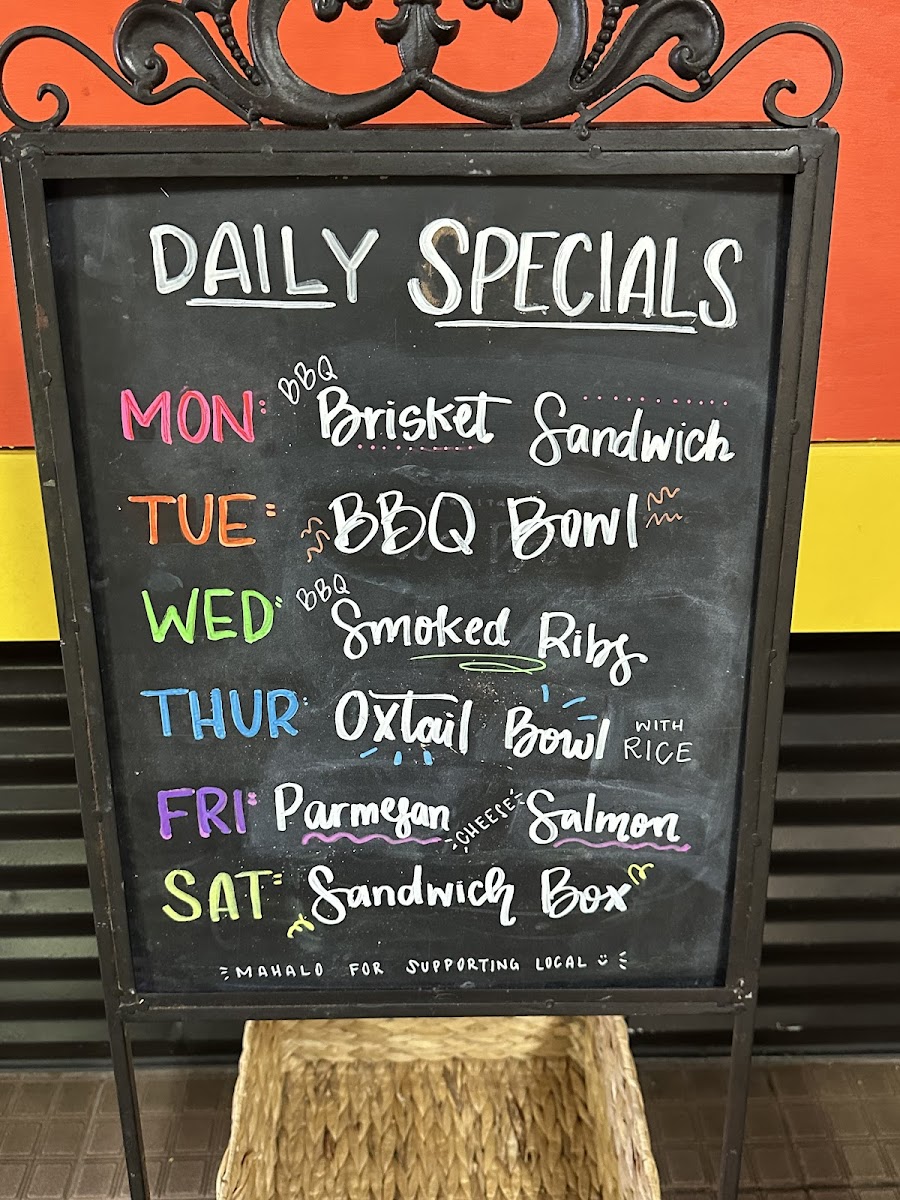 DAILY SPECIALS
MON: BBQ Brisket Sandwich
TUE: BBQ Bowl
WED: BBQ Smoked Ribs
THUR: Oxtail Bowl WITH RICE
FRI: Parmesan CHEESE Salmon
SAT: Sandwich Box
MAHALO FOR SUPPORTING LOCAL